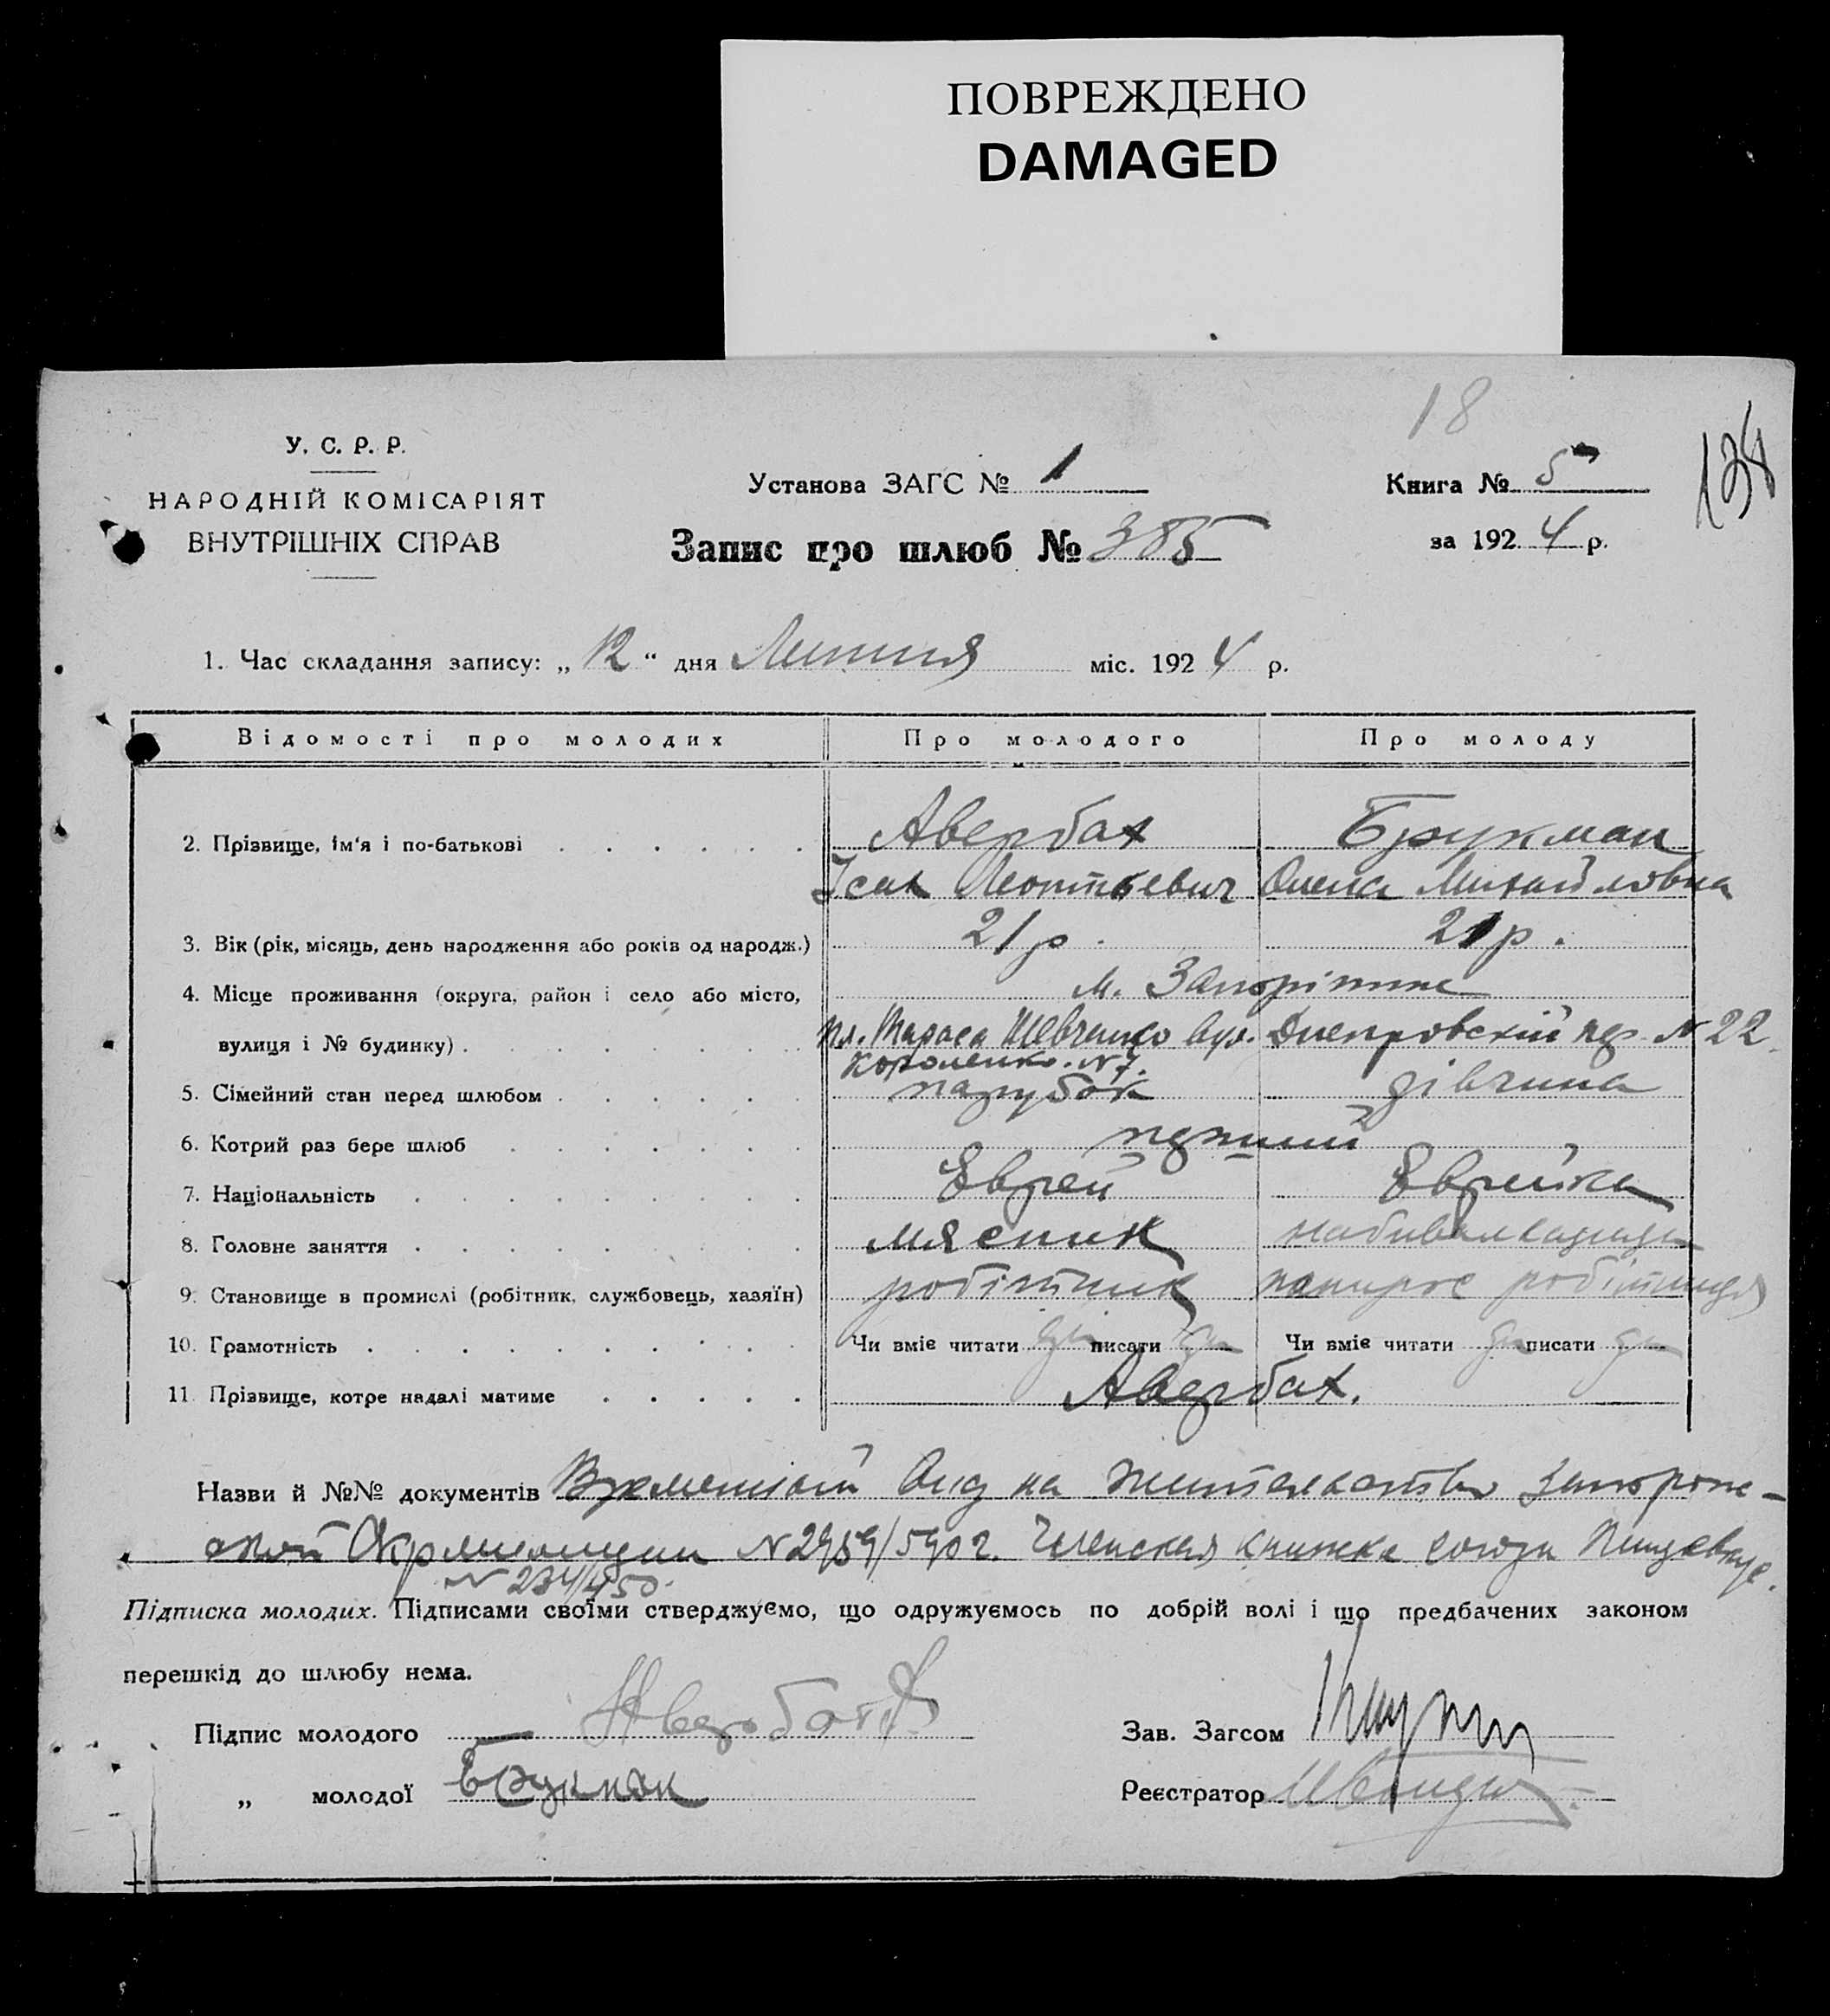 ПОВРЕЖДЕНО
DAMAGED
18
138
У. С. Р. Р.
НАРОДНІЙ КОМІСАРІЯТ
ВНУТРІШНІХ СПРАВ
Установа ЗАГС № 1
Книга № 5
Запис про шлюб № 385
за 1924 р.
1. Час складання запису: „12“ дня Липня міс. 1924 р.
Відомості про молодих Про молодого Про молоду
2. Прізвище, ім'я і по-батькові Авербах Брукман
Ісак Леонтьевич Олена Михайловна
3. Вік (рік, місяць, день народження або років од народж.) 21 р. 21 р.
4. Місце проживання (округа, район і село або місто, м. Запоріжжє
вулиця і № будинку) пл. Тараса Шевченко вул. Днепровский № 22
Короленко. N 7.
5. Сімейний стан перед шлюбом парубок дівчина
6. Котрий раз бере шлюб перший
7. Національність Єврей Єврейка
8. Головне заняття мясник
9. Становище в промислі (робітник, службовець, хазяїн) робітник папирос робітниця
10. Грамотність Чи вміє читати да писати да Чи вміє читати да писати да
11. Прізвище, котре надалі матиме Авербах.
Назви й №№ документів Временный Вид на жительство Запорож-
ской Окрмилиции N 2959/590 г. Членская книжка союза
N 234/450
Підписка молодих. Підписами своїми стверджуємо, що одружуємось по добрій волі і що предбачених законом
перешкід до шлюбу нема.
Підпис молодого Авербах Зав. Загсом
„ молодої Брукман Реєстратор